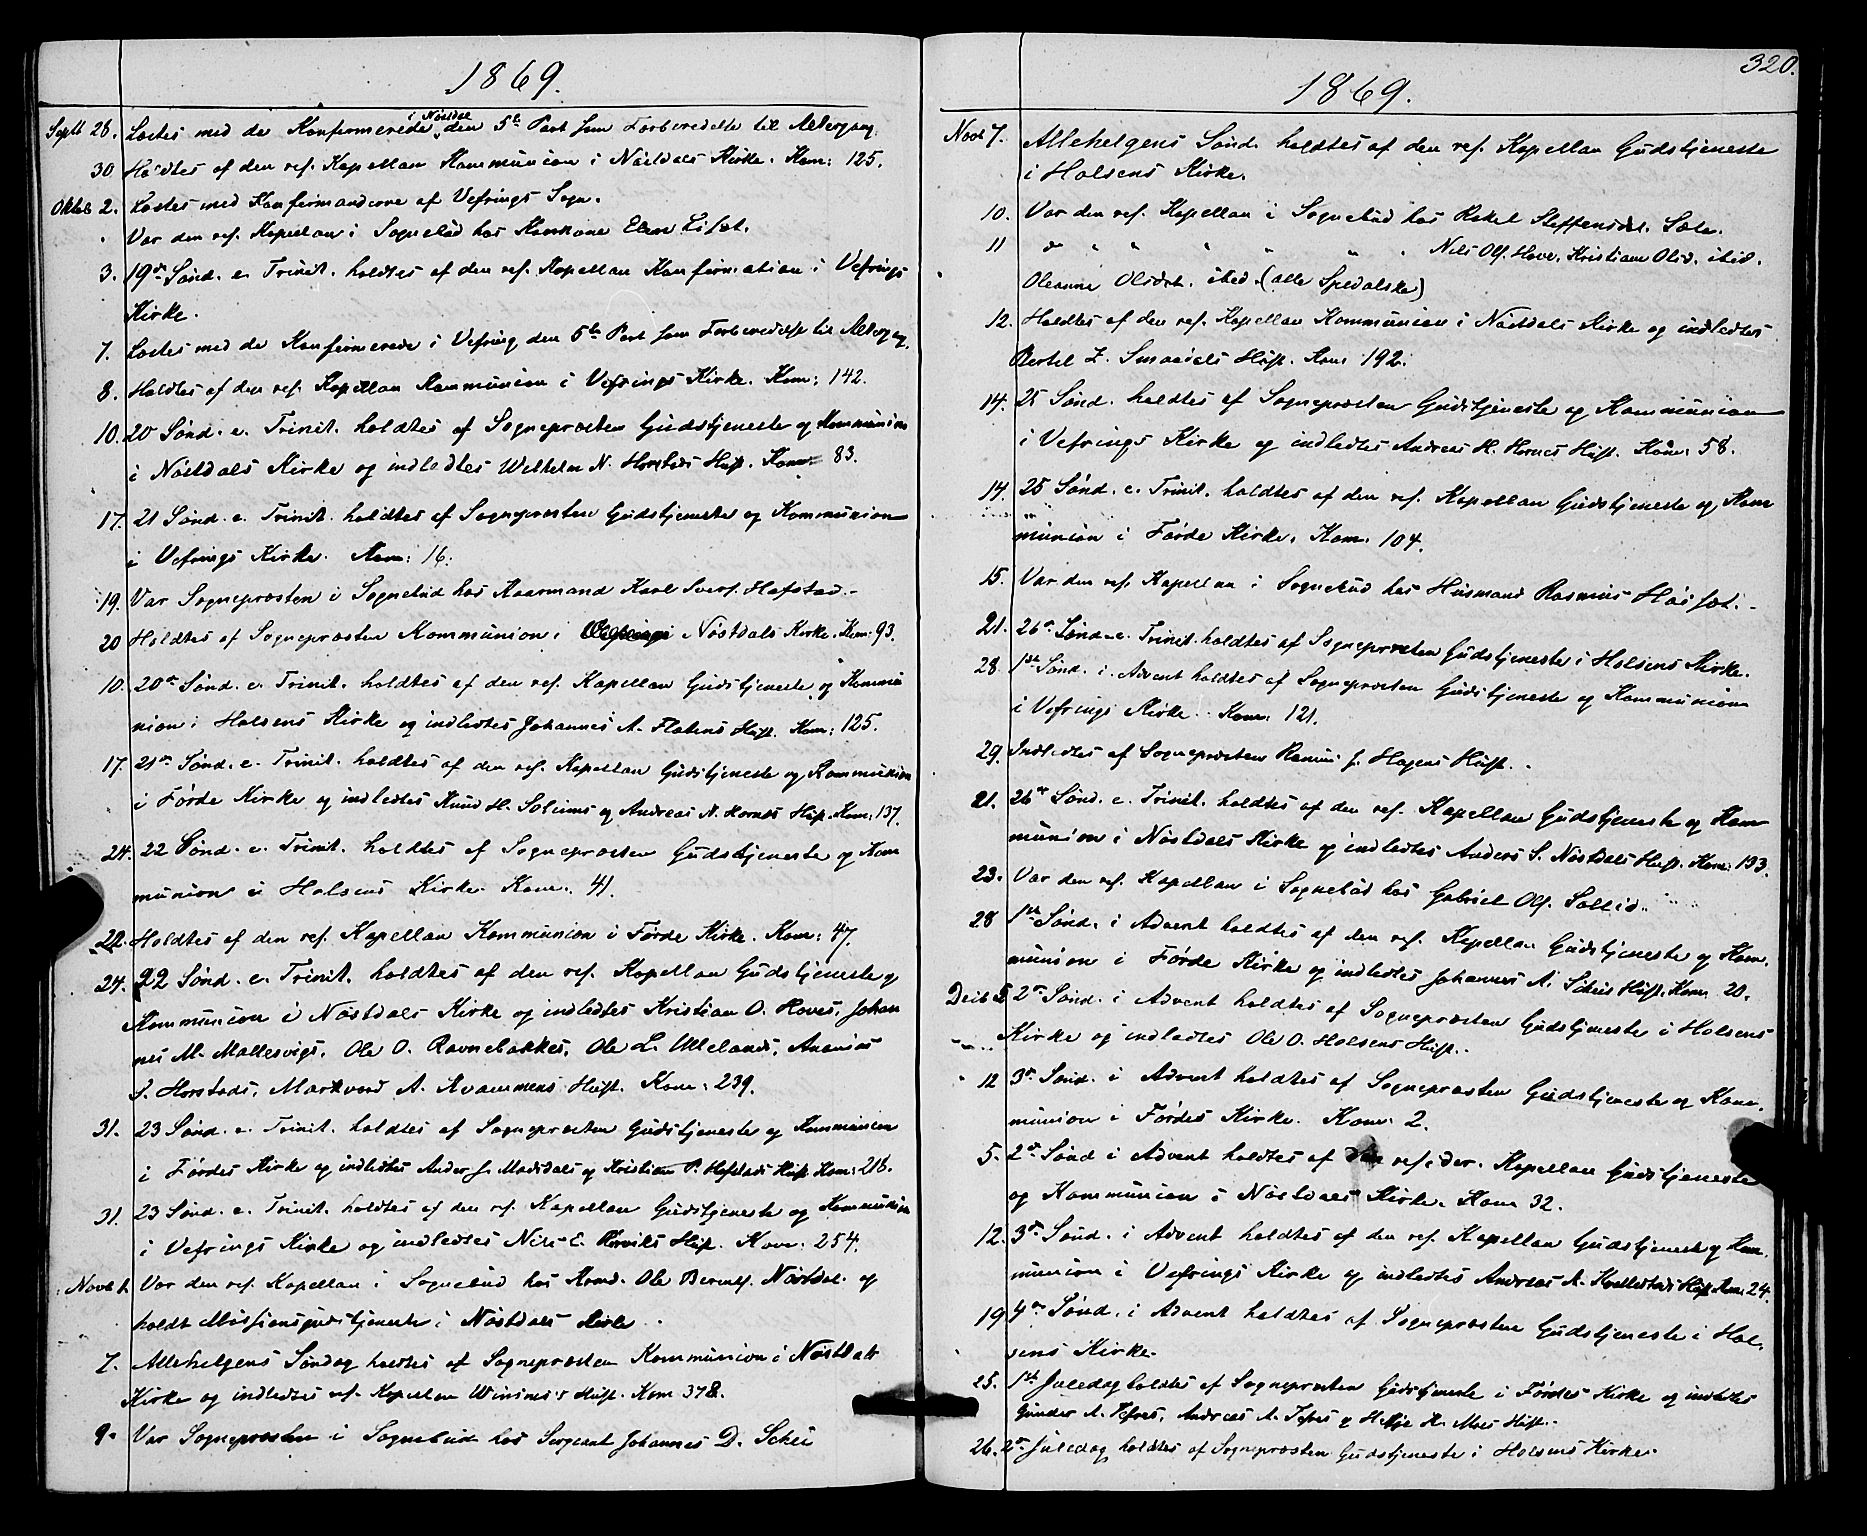 1869.
Septb 28. Læstes med de Konfirmerede i Nøstdal den 5te Part som Forberedelse til Altergang.
30 Holdtes af den res. Kapellan Kommunion i Nøstdals Kirke. Kom: 125.
Oktob 2. Læstes med Konfirmanderne af Vefrings Sogn.
Var den res. Kapellan i Sognebud hos Konkone Elen
3. 19de Sønd. e. Trinit. holdtes af den res. Kapellan Konfirmation i Vefrings
Kirke.
7. Læstes med de Konfirmerede i Vefring den 5te Part som Forberedelse til Altergang.
8. Holdtes af den res. Kapellan Kommunion i Vefrings Kirke. Kom: 142.
10. 20 Sønd. e. Trinit. holdtes af Sognepræsten Gudstjeneste og Kommunion
i Nøstdals Kirke og indledtes Wilhelm N. Horstads Hust. Kom: 83.
17. 21 Sønd. e. Trinit. holdtes af Sognepræsten Gudstjeneste og Kommunion
i Vefrings Kirke. Kom: 16.
19. Var Sognepræsten i Sognebud hos Kaarmand Karl Sivers. Hafstad.
20 Holdtes af Sognepræsten Kommunion i Nøstdals Kirke. Kom. 93.
10. 20de Sønd. e. Trinit. holdtes af den res. Kapellan Gudstjeneste og Kommu
nion i Holsens Kirke og indledtes Johannes A. Flatens Hust. Kom: 125.
17. 21de Sønd. e. Trinit. holdtes af den res. Kapellan Gudstjeneste og Kommunion
i Førde Kirke og indledtes Knud H. Solems og Andreas N. Hornes Hust. Kom: 137.
24. 22 Sønd. e. Trinit. holdtes af Sognepræsten Gudstjeneste og Kom
munion i Holsens Kirke Kom: 41.
22. Holdtes af den res. Kapellan Kommunion i Førde Kirke. Kom: 47.
24. 22 Sønd. e. Trinit. holdtes af den res. Kapellan Gudstjeneste og
Kommunion i Nøstdals Kirke og indledtes Kristian O. Hoves, Johan
nes M. Mallesvigs, Ole O. Ravnebakkes, Ole L. Ullelands, Ananias
S. Horstads, Markvard A. Kvammens Hust. Kom: 239.
31. 23 Sønd. e. Trinit. holdtes af Sognepræsten Gudstjeneste og Kommunion
i Førdes Kirke og indledtes Anders J. Mosdals og Kristian P. Hafstads Hust Kom: 216.
31. 23 Sønd. e. Trinit. holdtes af den res. Kapellan Gudstjeneste og Kommunion
i Vefrings Kirke og indledtes Nils E. Rørviks Hust. Kom: 254.
Novb 1. Var den res. Kapellan i Sognebud hos Ole Nøstdal og
holdt Missionsgudstjeneste i Nøstdals Kirke
7. Allehelgens Søndag holdtes af Sognepræsten Kommunion i Nøstdals
Kirke og indledtes res. Kapellan Winsnes's Hust. Kom 378.
9. Var Sognepræsten i Sognebud hos Sergeant Johannes D. Schei
320.
1869.
Novb 7. Allehelgens Sønd. holdtes af den res. Kapellan Gudstjeneste
i Holsens Kirke.
10. Var den res. Kapellan i Sognebud hos Rakel Steffensdt. Sæle.
11 do " " " " " Nils Ols. Hove, Kristiane Olsd. ibid.
Oleanna Olsdat. ibed. (alle Spedalske)
12. Holdtes af den res. Kapellan Kommunion i Nøstdals Kirke og indledtes
Bertel Z. Hust. Kom 192.
14. 25 Sønd. holdtes af Sognepræsten Gudstjeneste og Kommunion
i Vefrings Kirke og indledtes Andreas H. Hornes Hust. Kom: 58.
14. 25 Sønd. e. Trinit. holdtes af den res. Kapellan Gudstjeneste og Kom
munion i Førde Kirke. Kom. 104.
15. Var den res. Kapellan i Sognebud hos Husmand Rasmus
21. 26de Sønd. e. Trinit. holdtes af Sognepræsten Gudstjeneste i Holsens Kirke.
28. 1ste Sønd. i Advent holdtes af Sognepræsten Gudstjeneste og Kommunion
i Vefrings Kirke. Kom: 121.
29. Indledtes af Sognepræsten Rasmus J. Hagens Hust.
21. 26de Sønd. e. Trinit. holdtes af den res. Kapellan Gudstjeneste og Kom
munion i Nøstdals Kirke og indledtes Anders S. Nøstdals Hust. Kom: 193.
23. Var den res. Kapellan i Sognebud hos Gabriel Ols. Solhid.
28 1ste Sønd. i Advent holdtes af den res. Kapellan Gudstjeneste og Kom.
munion i Førde Kirke og indledtes Johannes A. Scheis Hust. Kom. 20.
Decb 5 2den Sønd. i Advent holdtes af Sognepræsten Gudstjeneste i Holsens
Kirke og indledtes Ole O. Holsens Hust.
12 3de Sønd. i Advent holdtes af Sognepræsten Gudstjeneste og Kom.
munion i Førdes Kirke. Kom. 2.
5. 2den Sønd i Advent holdtes af den resider. Kapellan Gudstjeneste
og Kommunion i Nøstdals Kirke. Kom 32.
12. 3de Sønd. i Advent holdtes af den res. Kapellan Gudstjeneste og Kom.
munion i Vefrings Kirke og indledtes Andreas A. Kvellestads Hust Kom. 24.
19 4de Sønd. i Advent holdtes af Sognepræsten Gudstjeneste i Hol.
sens Kirke.
25. 1ste Juledag holdtes af Sognepræsten Gudstjeneste i Førdes Kirke og indledtes
Gunder A. Tefres, Andreas A. Tefres og Helje H. Moes Hust.
26. 2den Juledag holdtes af Sognepræsten Gudstjeneste i Holsens Kirke.